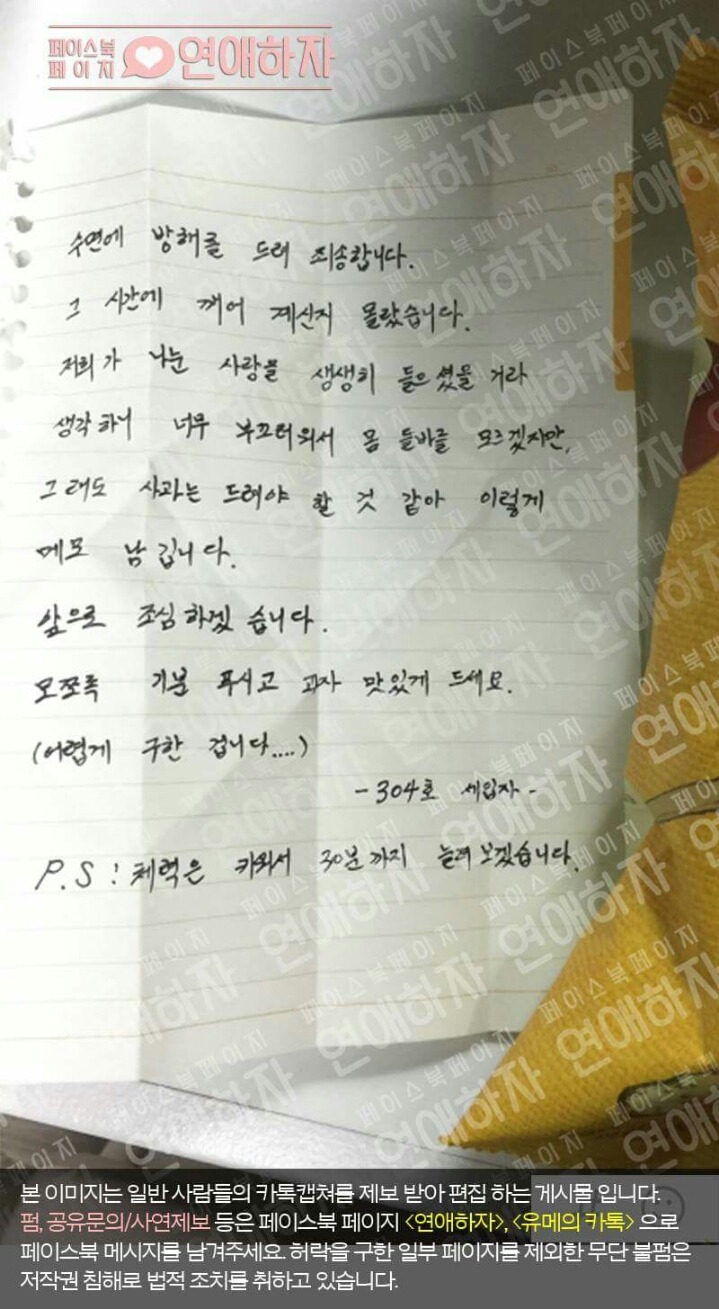 페이스북
페이지 연애하자
수면에 방해를 드려 죄송합니다.
그 시간에 깨어 계신지 몰랐습니다.
저희가 나눈 사랑을 생생히 들으셨을 거라
생각하니 너무 부끄러워서 몸 둘바를 모르겠지만,
그래도 사과는 드려야 할 것 같아 이렇게
메모 남깁니다.
앞으로 조심하겠습니다.
모쪼록 기분 푸시고 과자 맛있게 드세요.
(어렵게 구한 겁니다....)
-304호 세입자-
P.S : 체력은 키워서 30분까지 늘려보겠습니다.
본 이미지는 일반 사람들의 카톡캡쳐를 제보 받아 편집 하는 게시물 입니다.
펌, 공유문의/사연제보 등은 페이스북 페이지 <연애하자>, <유메의 카톡> 으로
페이스북 메시지를 남겨주세요. 허락을 구한 일부 페이지를 제외한 무단 불펌은
저작권 침해로 법적 조치를 취하고 있습니다.